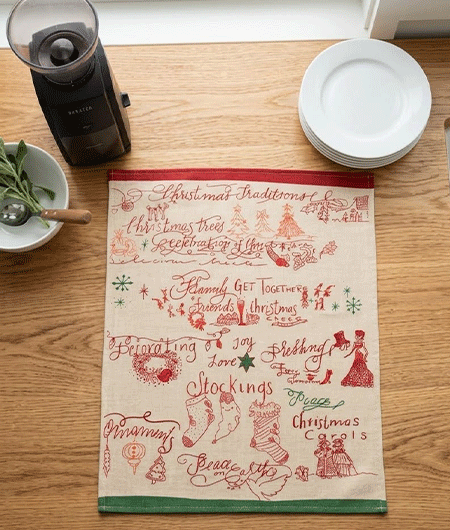 BARATZA
Christmas Traditions
Christmas trees
Celebration of
Family GET TOGETHERS
Friends Christmas
CHEER
Decorating Joy
Love
Dressing
Stockings
Peace
Christmas
Carols
Ornaments
Peace on Earth